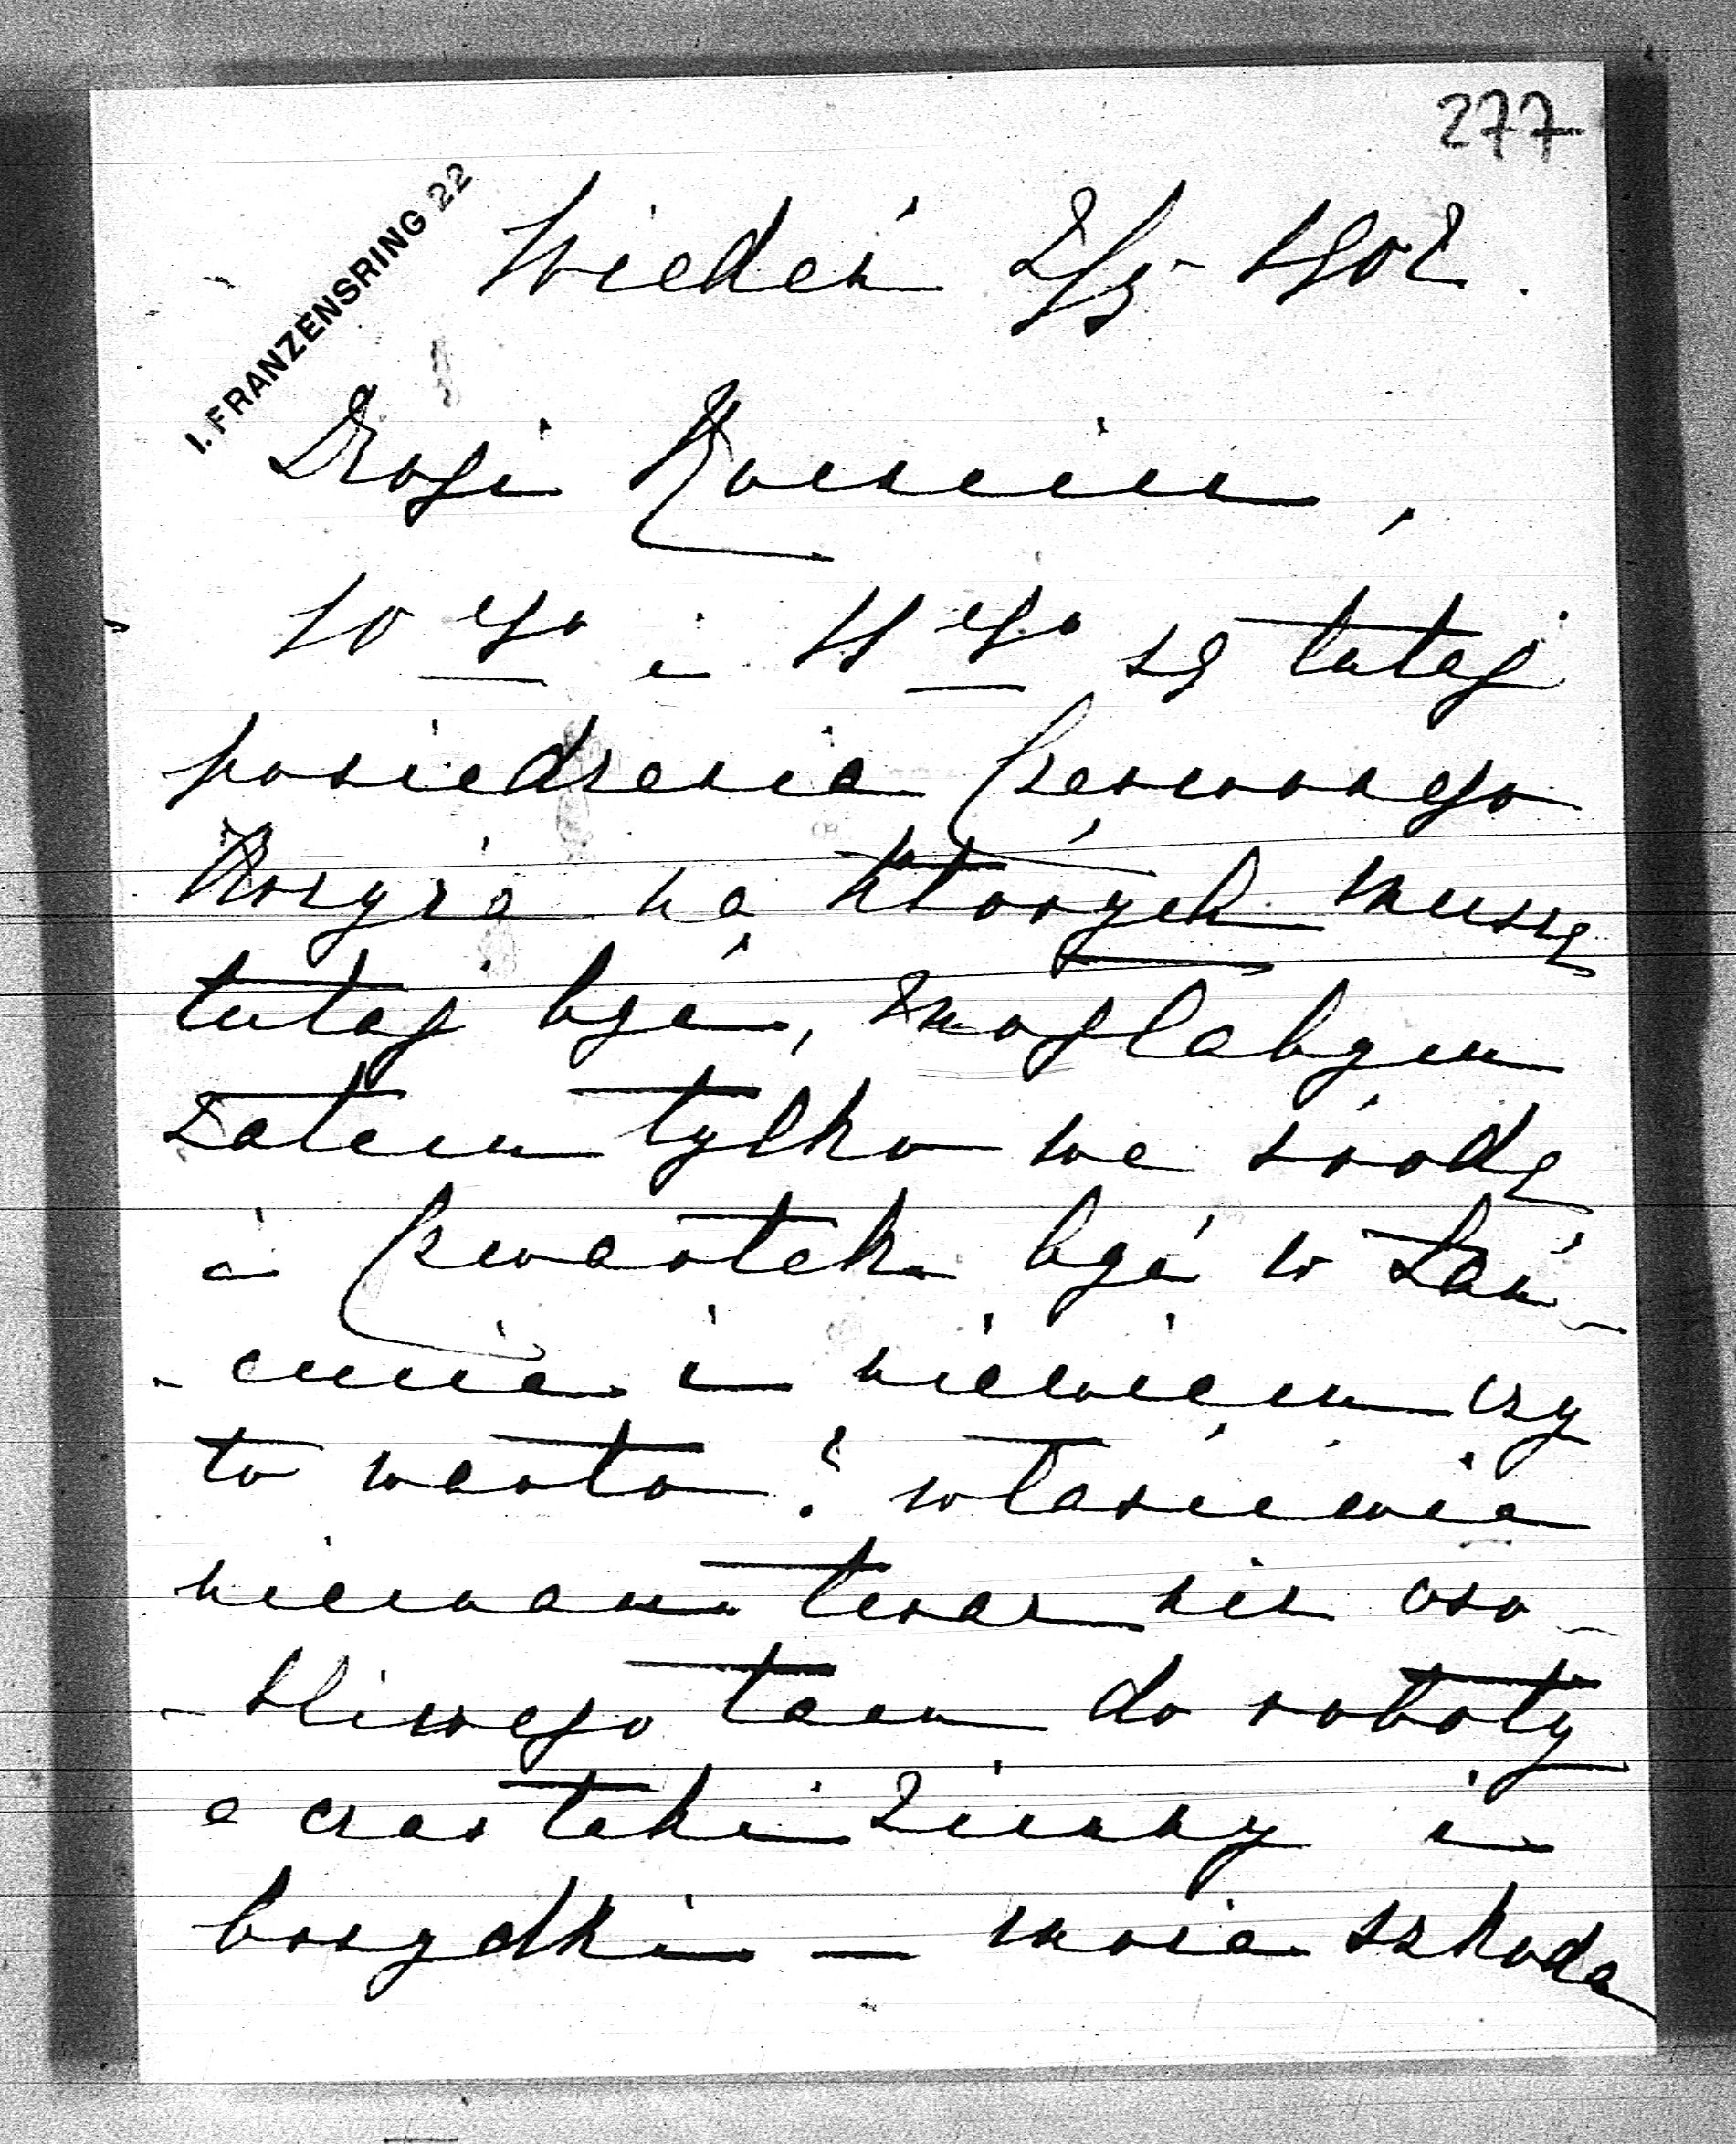 277
I. FRANZENSRING 22
Wiedeń 2/5 1902.
Drogi Kuniu,
10ego i 11ego są tutaj
posiedzenia Czerwonego
Krzyża na których muszę
tutaj być, mogłabym
zatem tylko we środę
i czwartek być w Łań-
-cucie i niewiem czy
to warto? właściwie
niemam teraz nic oso-
-bliwego tam do roboty
a czas taki zimny i
brzydki — może szkoda